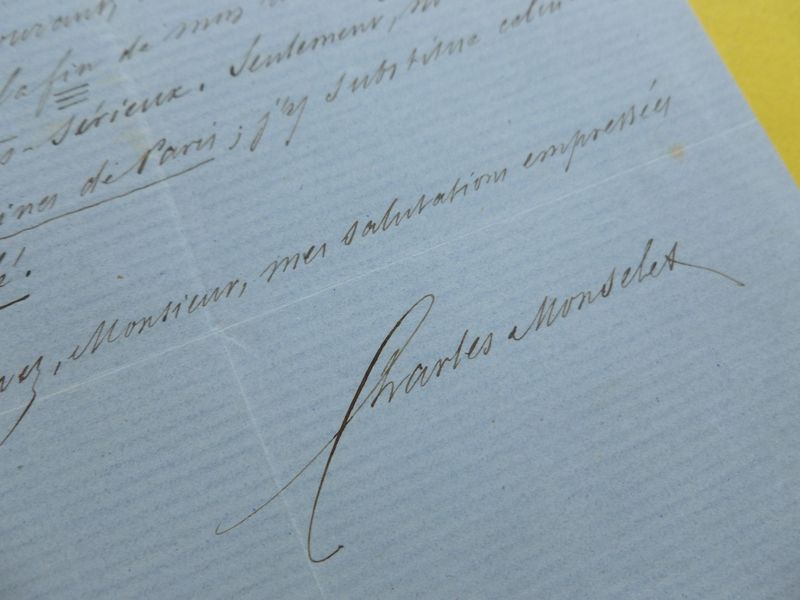 la fin de mes
s-sérieux. Seulement,
ines de Paris ; j'y substitue celui
é!
vez, Monsieur, mes salutations empressées
Charles Monselet